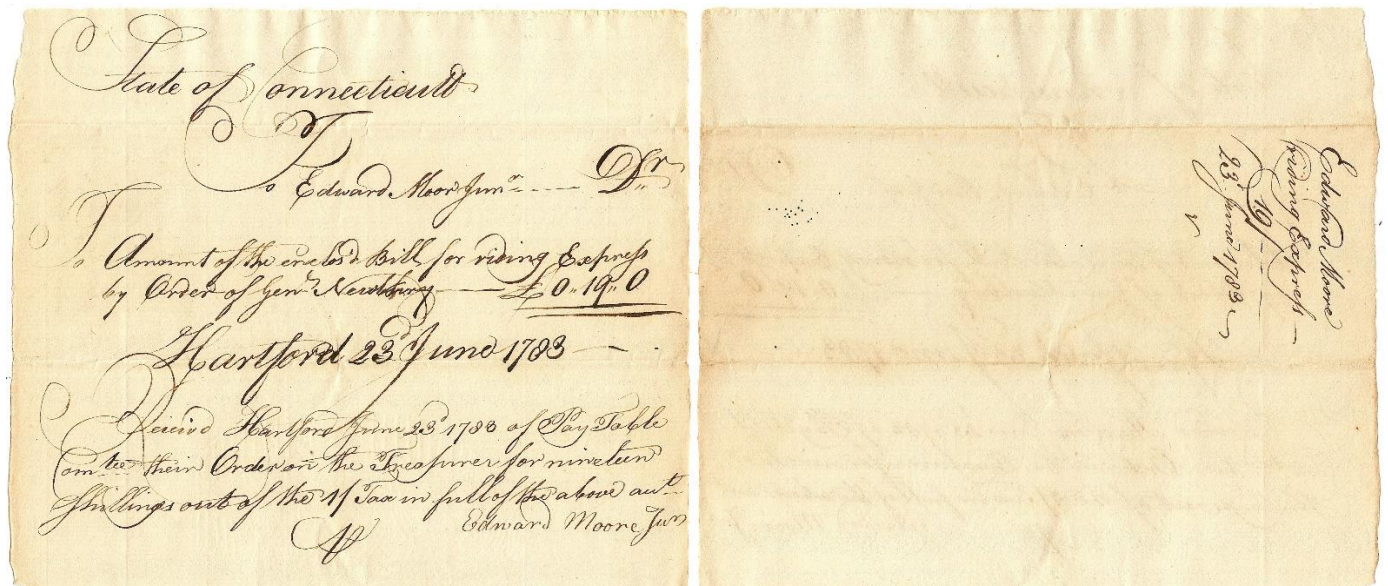 State of Connecticutt
To Edward Moor Junr ---- Dr
To Amount of the enclosd Bill for riding Express
by Order of Genll Newbery — £0.. 19.. 0
Hartford 23d June 1783 —
Receivd Hartford June 23d 1783 of Pay Table
Comtee their Order on the Treasurer for nineteen
Shillings out of the 1/ Tax in full of the above acct
Edward Moore Junr
Edward Moore
riding Express —
19/ —
23d June 1783